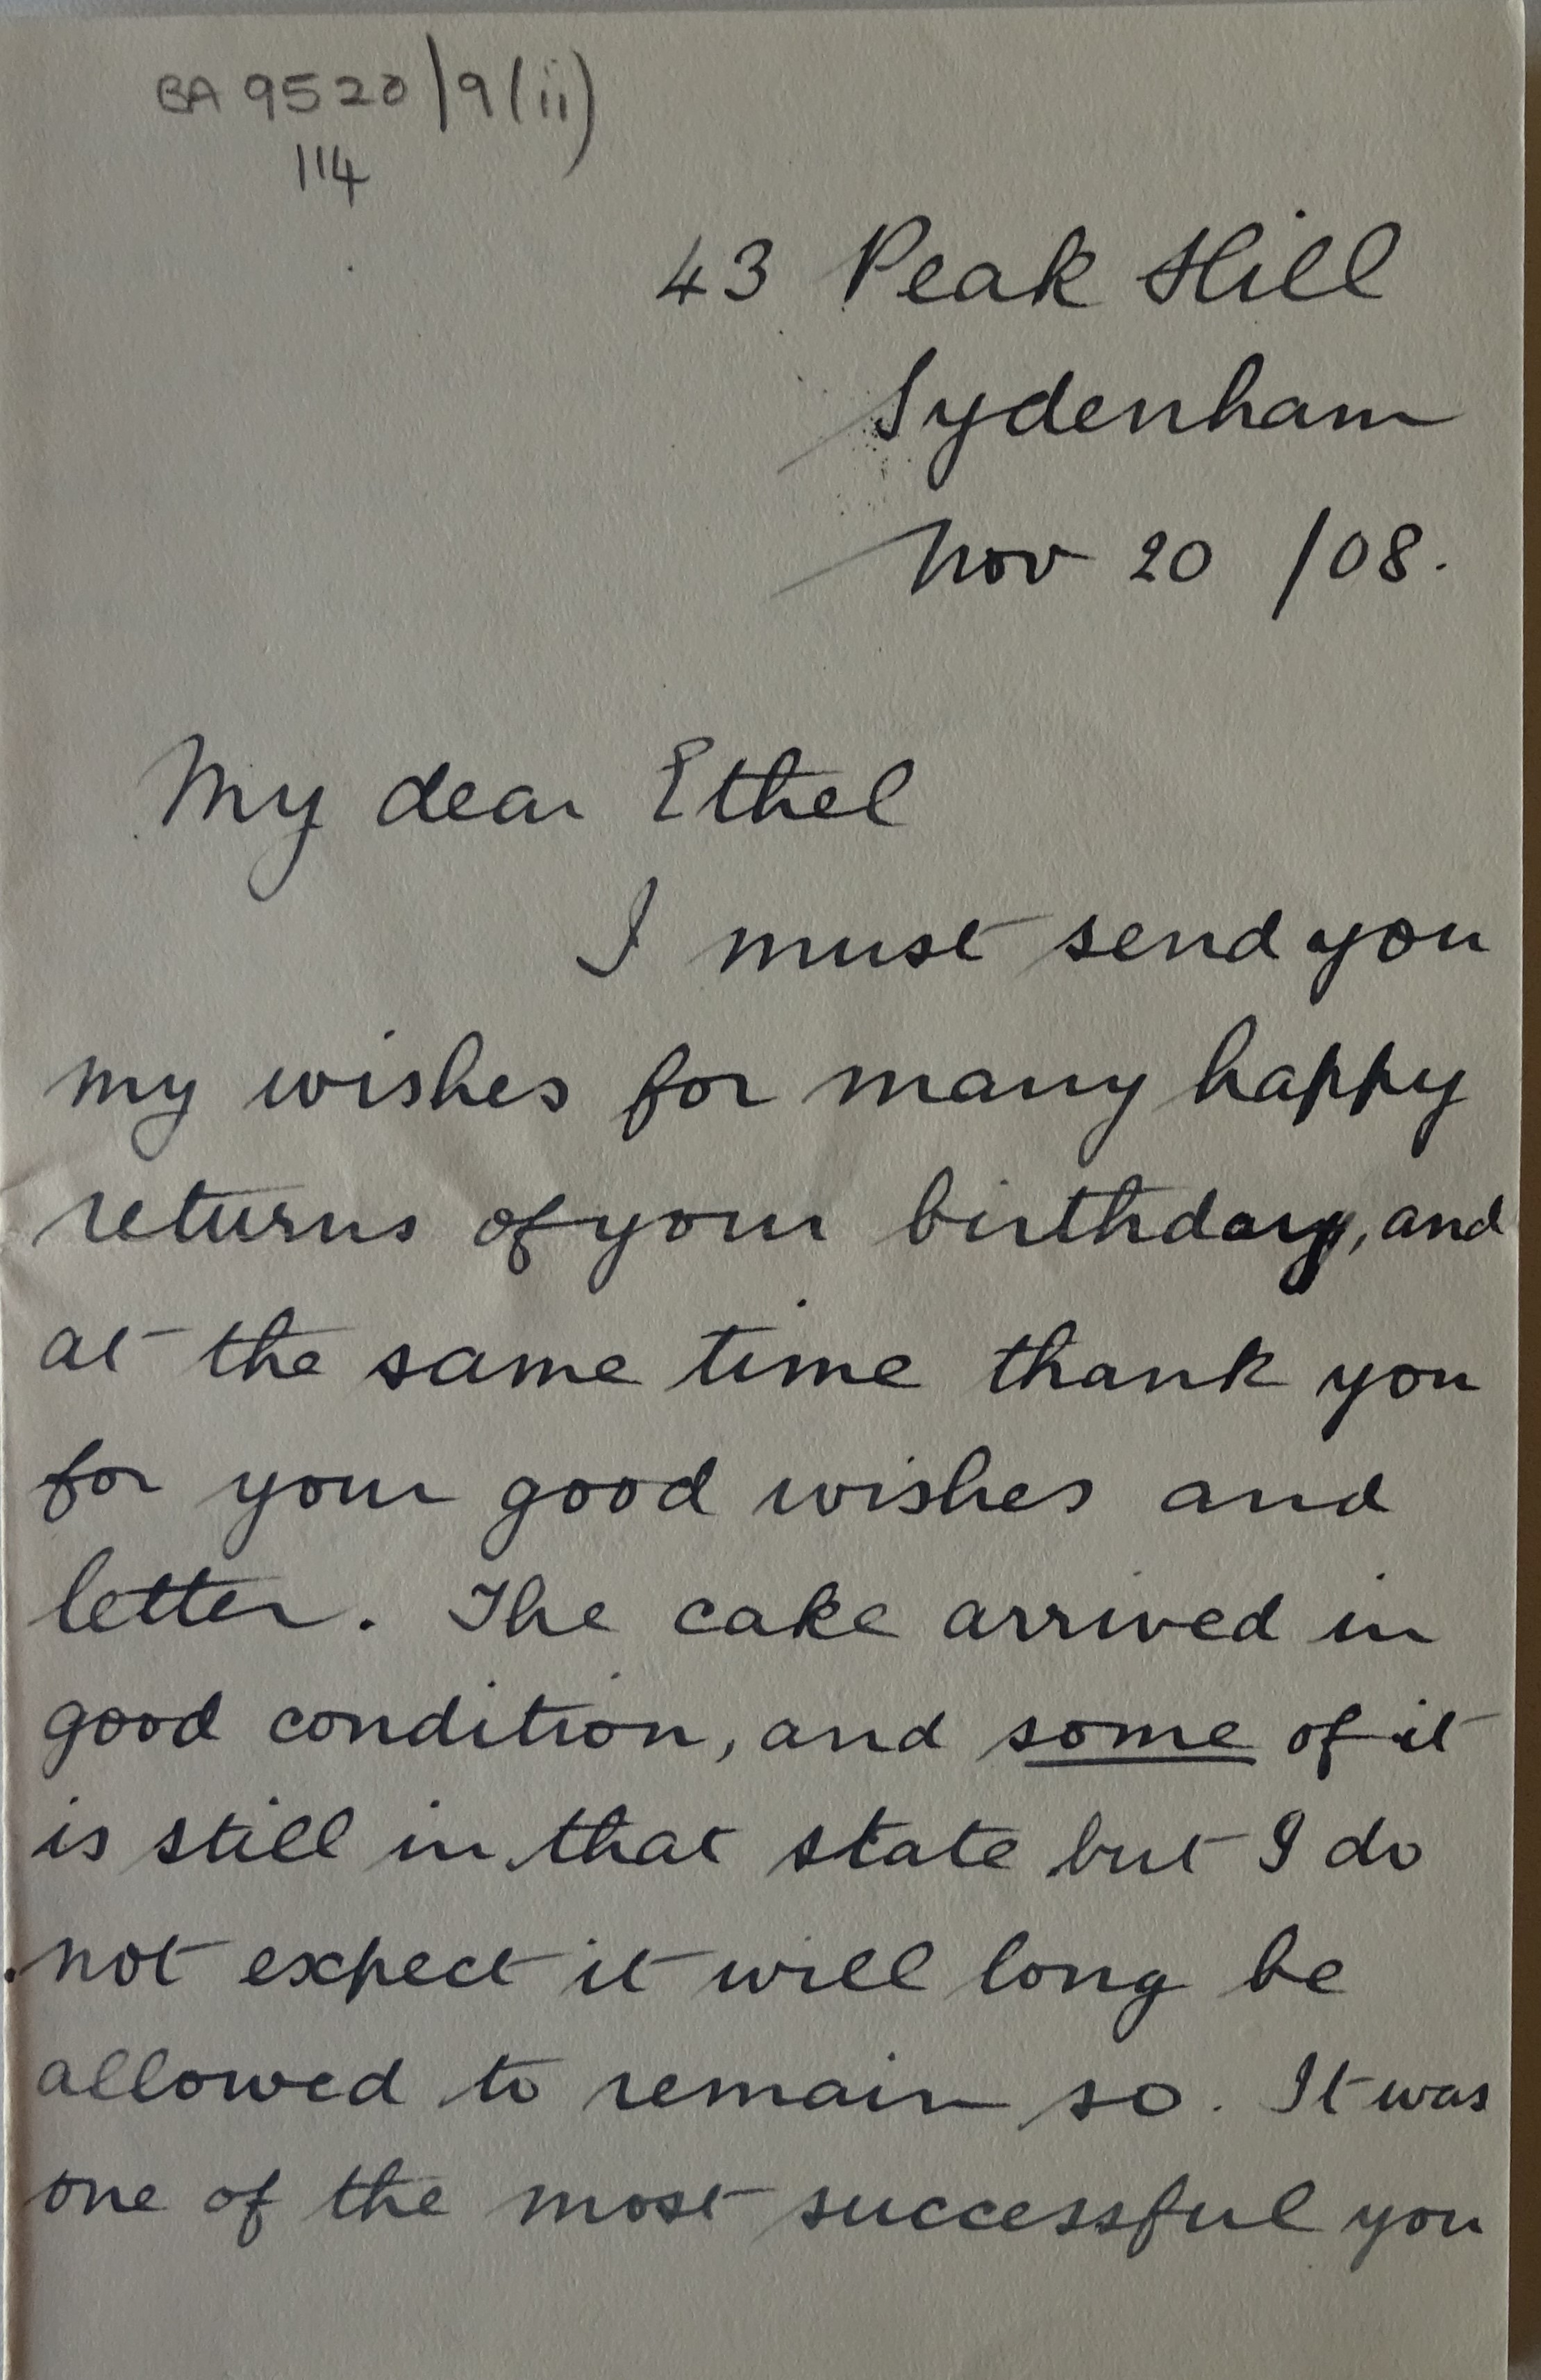 BA 9520/9(ii)
114
43 Peak Hill
Sydenham
Nov 20 /08.
My dear Ethel
I must send you
my wishes for many happy
returns of your birthday, and
at the same time thank you
for your good wishes and
letter. The cake arrived in
good condition, and some of it
is still in that state but I do
not expect it will long be
allowed to remain so. It was
one of the most successful you